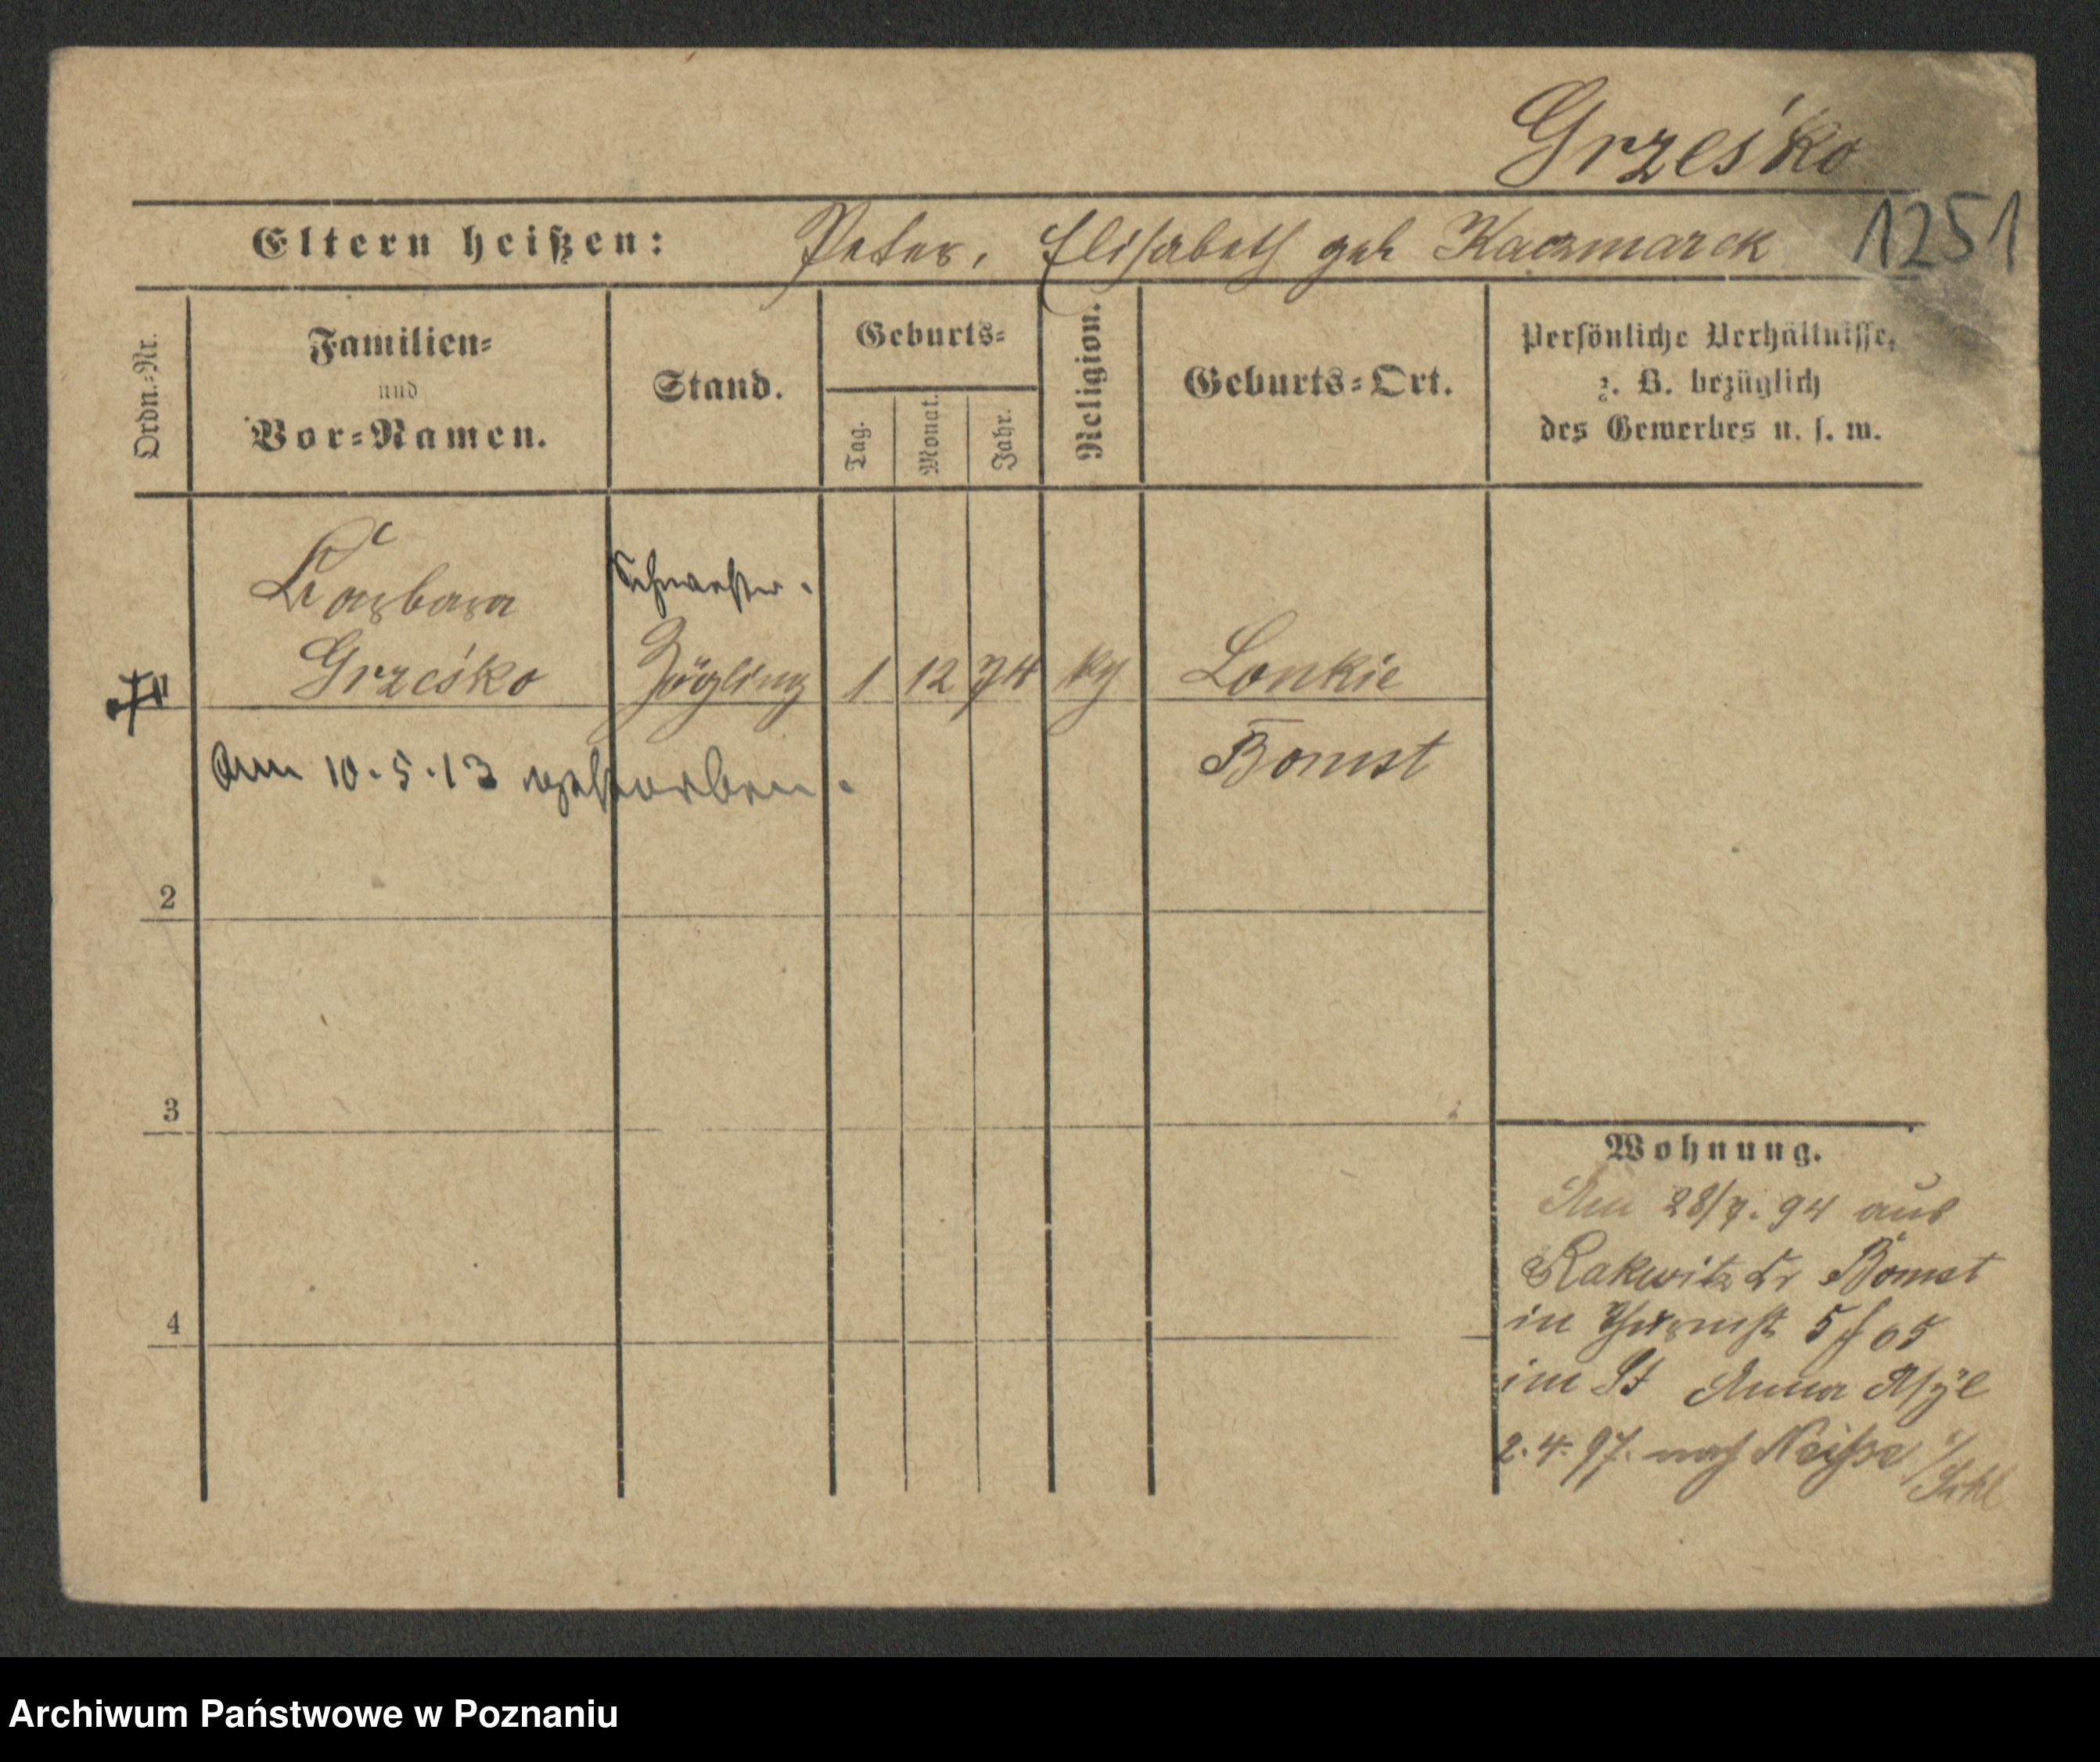 Grześko
1251
Eltern heißen: Peter, Elisabeth geb Kaczmarck
Ordn.=Nr.
Familien=
und
Vor=Namen.
Stand.
Geburts=
Tag.
Monat.
Jahr.
Religion.
Geburts=Ort.
Persönliche Verhältnisse,
z. B. bezüglich
des Gewerbes u. s. w.
Schwester.
Barbara
Grześko Zögling 1 12 74 kg Lonkie
Bomst
am 10.5.13 gestorben.
2
3
4
Wohnung.
Am 28/7. 94 aus
Rakwitz Kr Bomst
in 5 65
im St Anna Asyl
2.4.97. nach Neisse